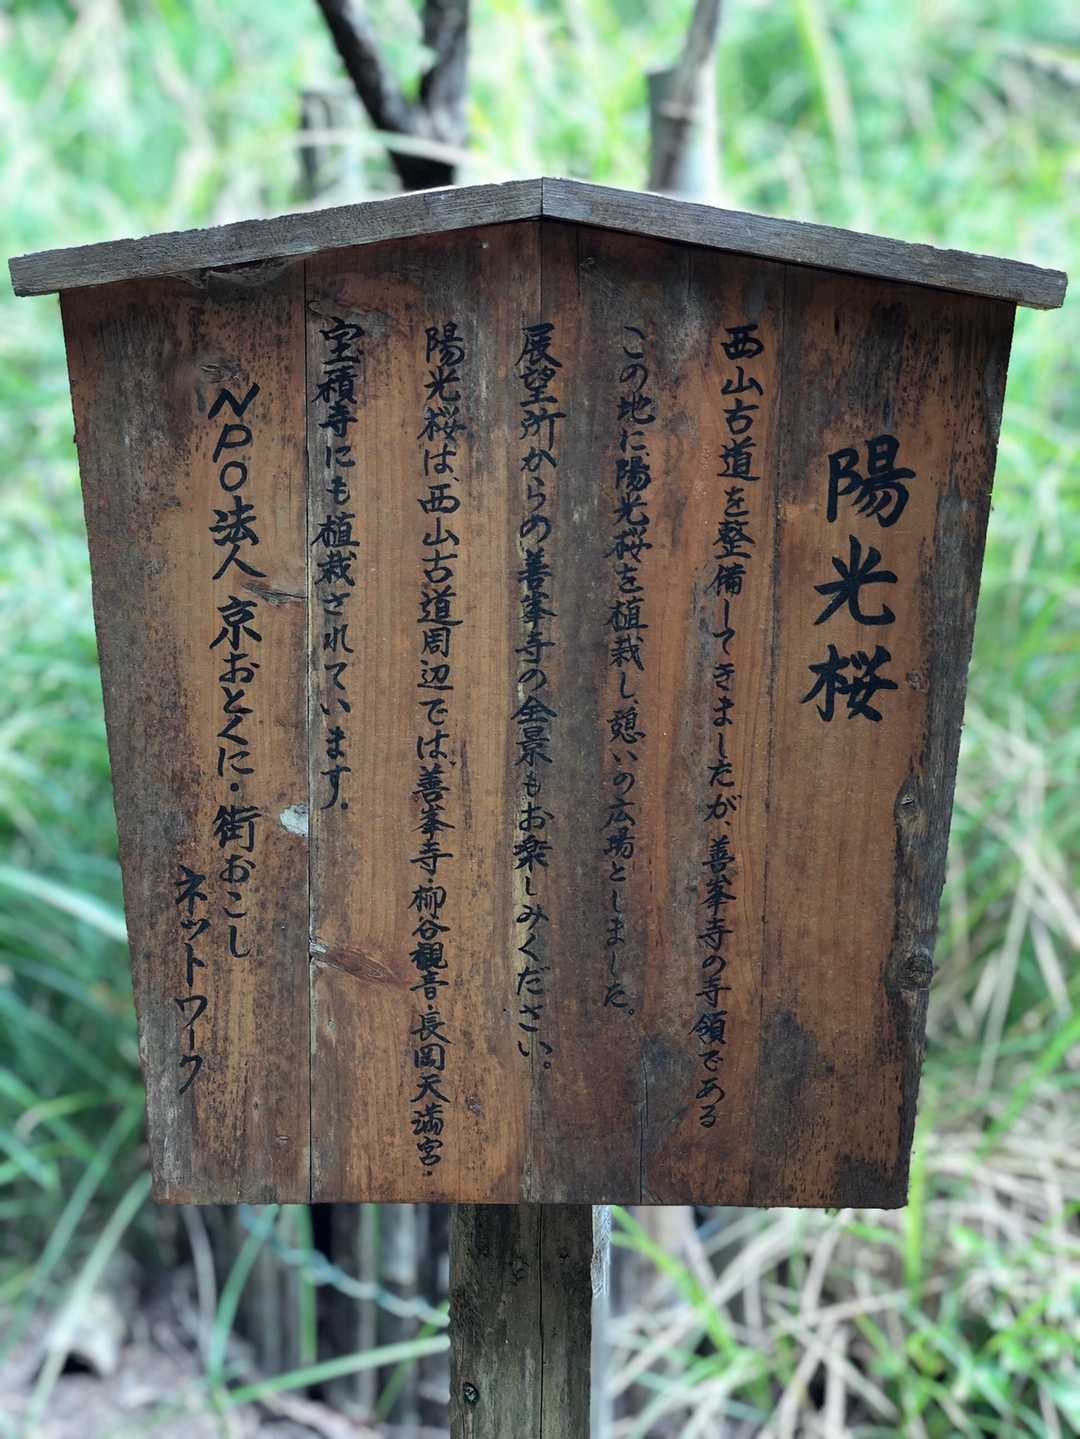 陽光桜
西山古道を整備してきましたが、善峯寺の寺領である
この地に、陽光桜を植栽し、憩いの広場としました。
展望所からの善峯寺の全景もお楽しみください。
陽光桜は、西山古道周辺では、善峯寺・柳谷観音・長岡天満宮・
宝積寺にも植栽されています。
NPO法人 京おとくに・街おこし
ネットワーク